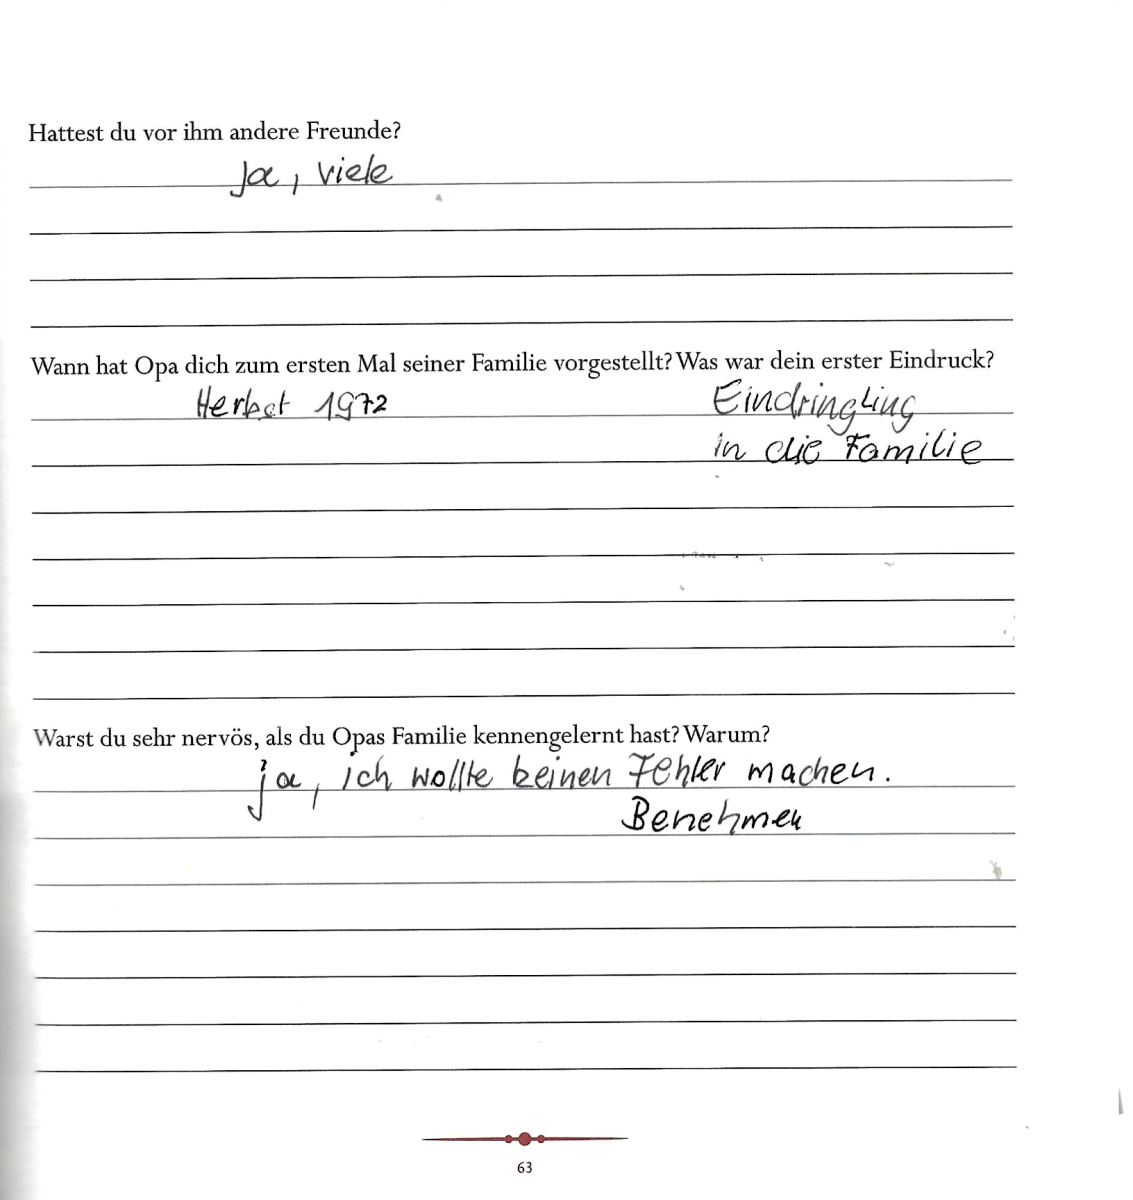 Hattest du vor ihm andere Freunde?
Ja, viele
Wann hat Opa dich zum ersten Mal seiner Familie vorgestellt? Was war dein erster Eindruck?
Herbst 1972 Eindringling
in die Familie
Warst du sehr nervös, als du Opas Familie kennengelernt hast? Warum?
ja, ich wollte keinen Fehler machen.
Benehmen
63